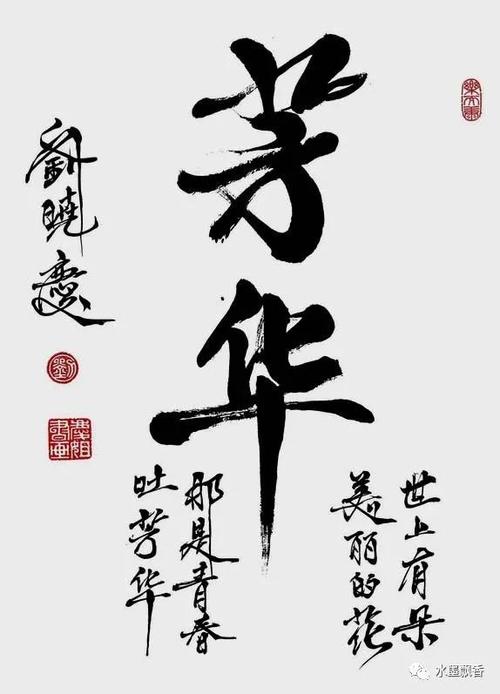 芳华
世上有朵
美丽的花
那是青春
吐芳华
劉曉慶
劉
水墨飘香